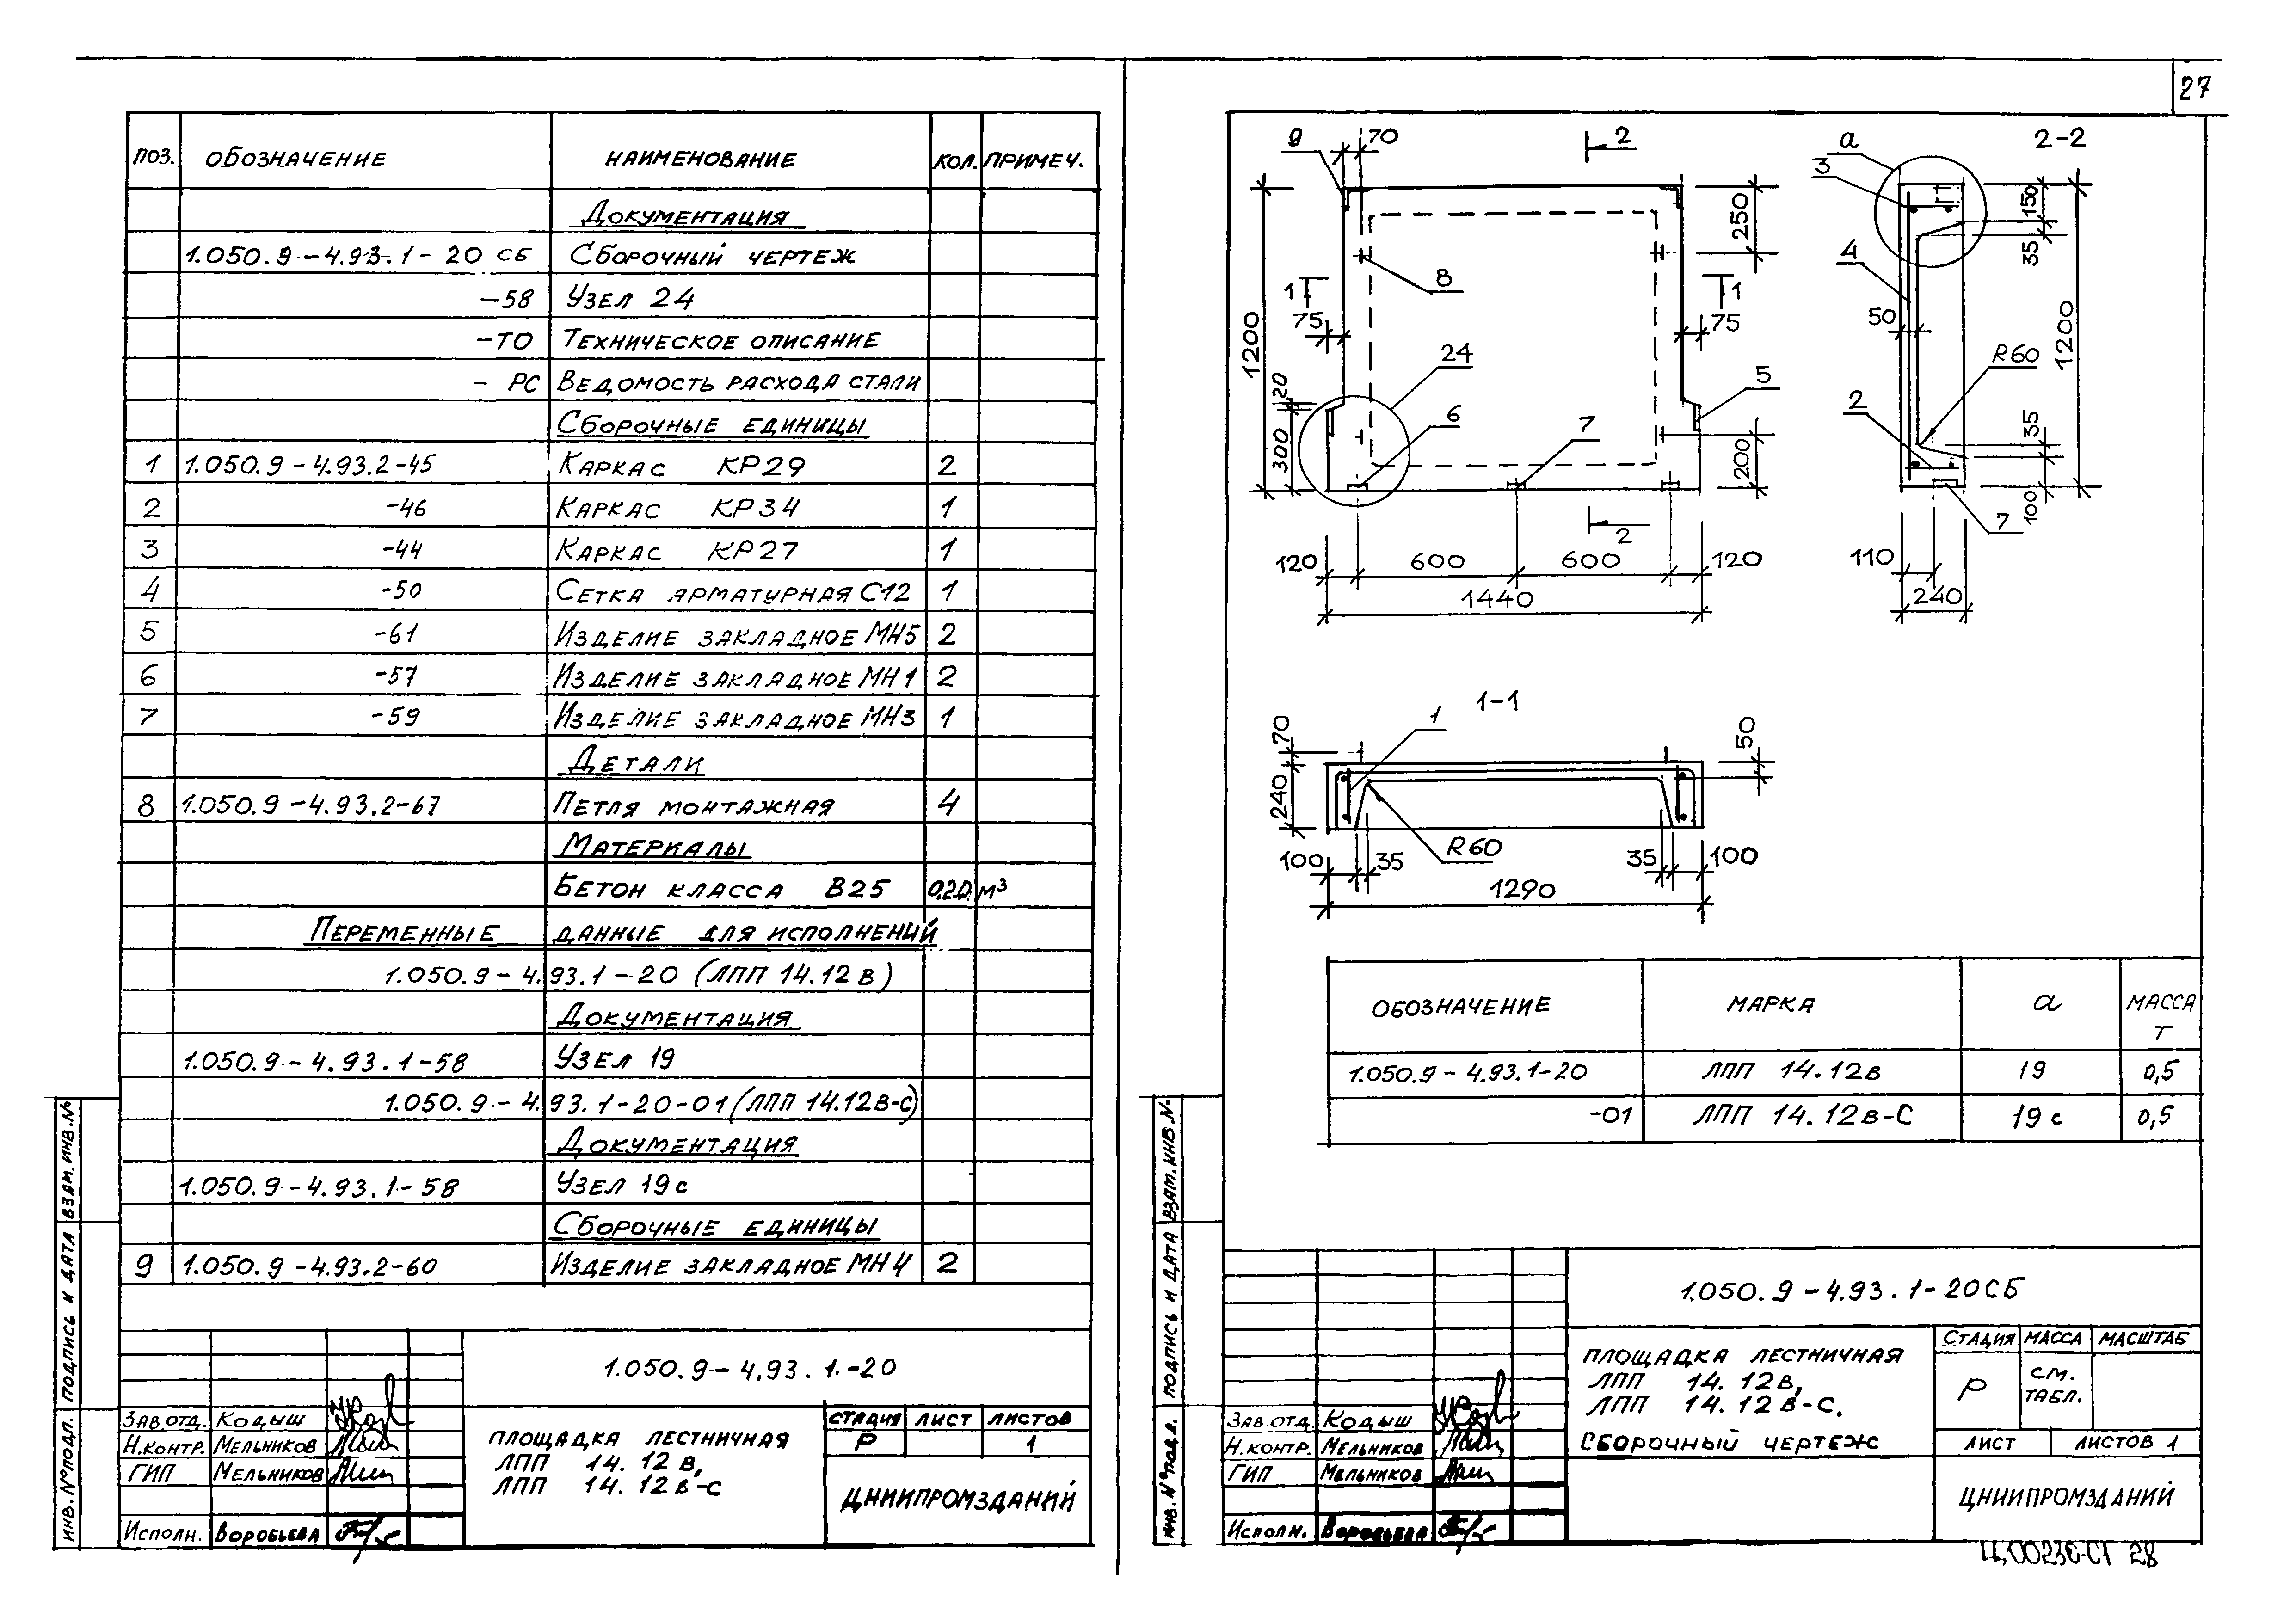 27
ПОЗ. ОБОЗНАЧЕНИЕ НАИМЕНОВАНИЕ КОЛ. ПРИМЕЧ.
ДОКУМЕНТАЦИЯ
1.050.9-4.93.1-20 СБ СБОРОЧНЫЙ ЧЕРТЕЖ
-58 УЗЕЛ 24
-ТО ТЕХНИЧЕСКОЕ ОПИСАНИЕ
- РС ВЕДОМОСТЬ РАСХОДА СТАЛИ
СБОРОЧНЫЕ ЕДИНИЦЫ
1 1.050.9-4.93.2-45 КАРКАС КР29 2
2 -46 КАРКАС КР34 1
3 -44 КАРКАС КР27 1
4 -50 СЕТКА АРМАТУРНАЯ С12 1
5 -61 ИЗДЕЛИЕ ЗАКЛАДНОЕ МН5 2
6 -57 ИЗДЕЛИЕ ЗАКЛАДНОЕ МН1 2
7 -59 ИЗДЕЛИЕ ЗАКЛАДНОЕ МН3 1
ДЕТАЛИ
8 1.050.9-4.93.2-67 ПЕТЛЯ МОНТАЖНАЯ 4
МАТЕРИАЛЫ
БЕТОН КЛАССА В25 0,20 м³
ПЕРЕМЕННЫЕ ДАННЫЕ ДЛЯ ИСПОЛНЕНИЙ
1.050.9-4.93.1-20 (ЛПП 14.12 в)
ДОКУМЕНТАЦИЯ
1.050.9-4.93.1-58 УЗЕЛ 19
1.050.9-4.93.1-20-01 (ЛПП 14.12в-С)
ДОКУМЕНТАЦИЯ
1.050.9-4.93.1-58 УЗЕЛ 19с
СБОРОЧНЫЕ ЕДИНИЦЫ
9 1.050.9-4.93.2-60 ИЗДЕЛИЕ ЗАКЛАДНОЕ МН4 2
1.050.9-4.93.1.-20
ЗАВ.ОТД. КОДЫШ
Н.КОНТР. МЕЛЬНИКОВ
ГИП МЕЛЬНИКОВ
ИСПОЛН. ВОРОБЬЕВА
ПЛОЩАДКА ЛЕСТНИЧНАЯ
ЛПП 14.12 в,
ЛПП 14.12 в-С
СТАДИЯ ЛИСТ ЛИСТОВ
Р 1
ЦНИИПРОМЗДАНИЙ
ИНВ.№ПОДЛ. ПОДПИСЬ И ДАТА ВЗАМ.ИНВ.№
9 70 2
1200
250
8
1 1
75 75
24
20
300
6
7
5
200
2
120 600 600 120
1440
а 2-2
3
150
35
4
50
1200
R60
2
35
100
7
110
240
1-1
1
70
240
50
R60
100 35 35 100
1290
ОБОЗНАЧЕНИЕ МАРКА а МАССА Т
1.050.9-4.93.1-20 ЛПП 14.12в 19 0,5
-01 ЛПП 14.12в-С 19с 0,5
1.050.9-4.93.1-20СБ
ЗАВ.ОТД. КОДЫШ
Н.КОНТР. МЕЛЬНИКОВ
ГИП МЕЛЬНИКОВ
ИСПОЛН. ВОРОБЬЕВА
ПЛОЩАДКА ЛЕСТНИЧНАЯ
ЛПП 14.12в,
ЛПП 14.12в-С.
СБОРОЧНЫЙ ЧЕРТЕЖ
СТАДИЯ МАССА МАСШТАБ
Р СМ. ТАБЛ.
ЛИСТ ЛИСТОВ 1
ЦНИИПРОМЗДАНИЙ
ИНВ.№ПОДЛ. ПОДПИСЬ И ДАТА ВЗАМ.ИНВ №
28